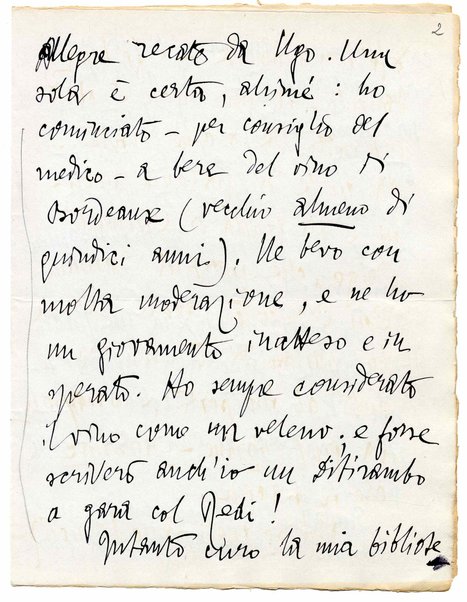 2
allegre recate da Ugo. Una
sola è certa, ahimé: ho
cominciato – per consiglio del
medico – a bere del vino di
Bordeaux (vecchio almeno di
quindici anni). Ne bevo con
molta moderazione, e ne ho
un giovamento inatteso e in
sperato. Ho sempre considerato
il vino come un veleno; e forse
scriverò anch'io un ditirambo
a gara col Redi!
Intanto curo la mia bibliote